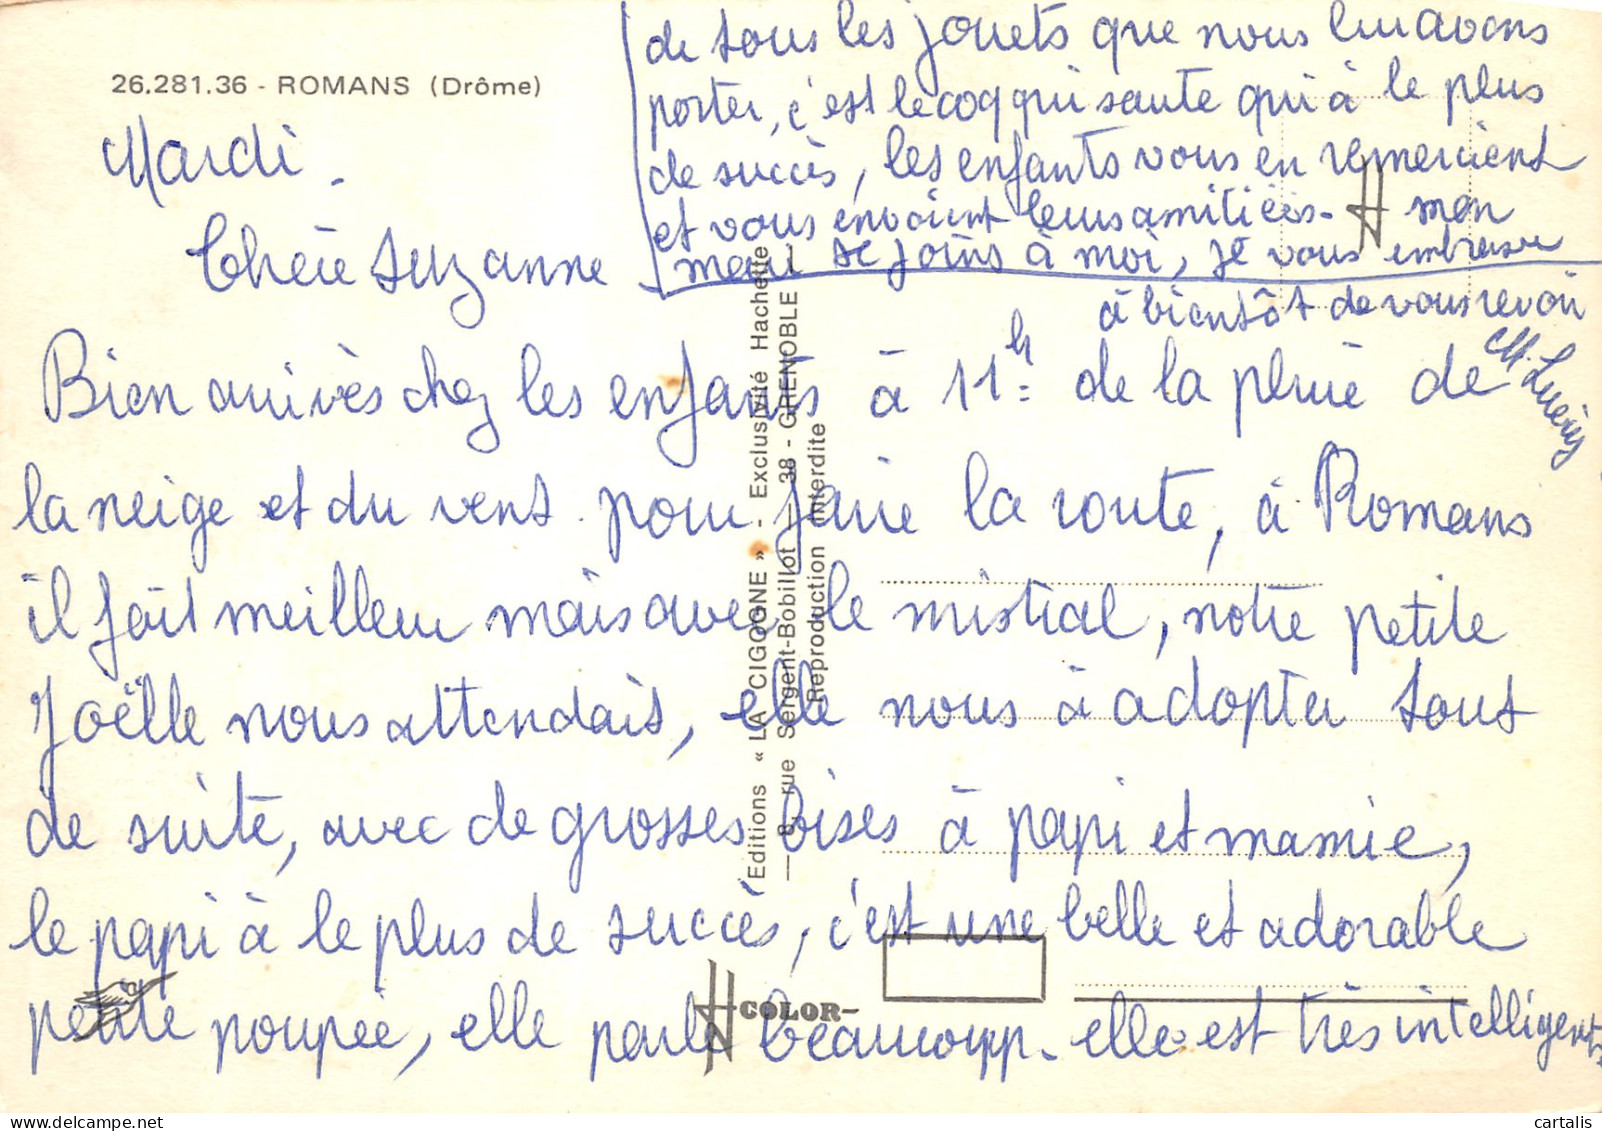 26.281.36 - ROMANS (Drôme)
Mardi.
Chère Suzanne
Bien arrivès chez les enfants à 11h: de la pluie de
la neige et du vent pour faire la route, à Romans
il fait meilleur mais avec le mistral, notre petite
Joëlle nous attendait, elle nous à adopter tout
de suite, avec de grosses bises à papi et mamie,
le papi à le plus de succès, c'est une belle et adorable
petite poupée, elle parle beaucoupp. elle est très intelligente
de tous les jouets que nous lui avons
porter, c'est le coq qui saute qui à le plus
de succès, les enfants vous en remercient
et vous envoient leurs amitiées. mon
mari se joins à moi, je vous embrasse
à bientôt de vous revoir
M.
Editions « LA CIGOGNE » - Exclusivité Hachette
— 8, rue Sergent-Bobillot — 38 - GRENOBLE —
Reproduction interdite
COLOR-
delcampe.net
cartalis